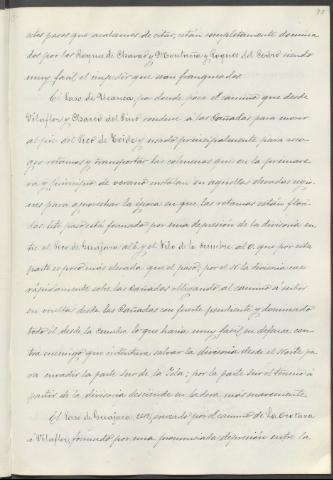 estos pasos que acabamos de citar, están completamente domina-
dos por los Roques de Chavao y Montaña y Roques del Cedro siendo
muy facil el impedir que sean franqueados.
El Paso de Ucanca, por donde pasa el camino que desde
Vilaflor y Charco del Pino conduce a las Cañadas para morir
al pié del Pico de Teide y usado principalmente para reco-
ger retamas y transportar las colmenas que en la primave-
ra y principio de verano instalan en aquellas elevadas regio-
nes para aprovechar la época en que las retamas están flori-
das. Este paso está formado por una depresión de la divisoria en-
tre el Pico de Guajara al E. y el Filo de la Cumbre al O. que por esta
parte es poco mas elevada que el paso; por el N. la divisoria cae
rápidamente sobre las Cañadas obligando al camino á subir
en vueltas desde las Cañadas con fuerte pendiente y dominado
todo él desde la cumbre lo que haria muy facil su defensa con-
tra enemigo que intentara salvar la divisoria desde el Norte pa-
ra invadir la parte Sur de la Isla; por la parte Sur el terreno á
partir de la divisoria desciende en ladera mas suavemente.
El Paso de Guajara, cruzado por el camino de La Orotava
á Vilaflor, formado por una pronunciada depresión entre la